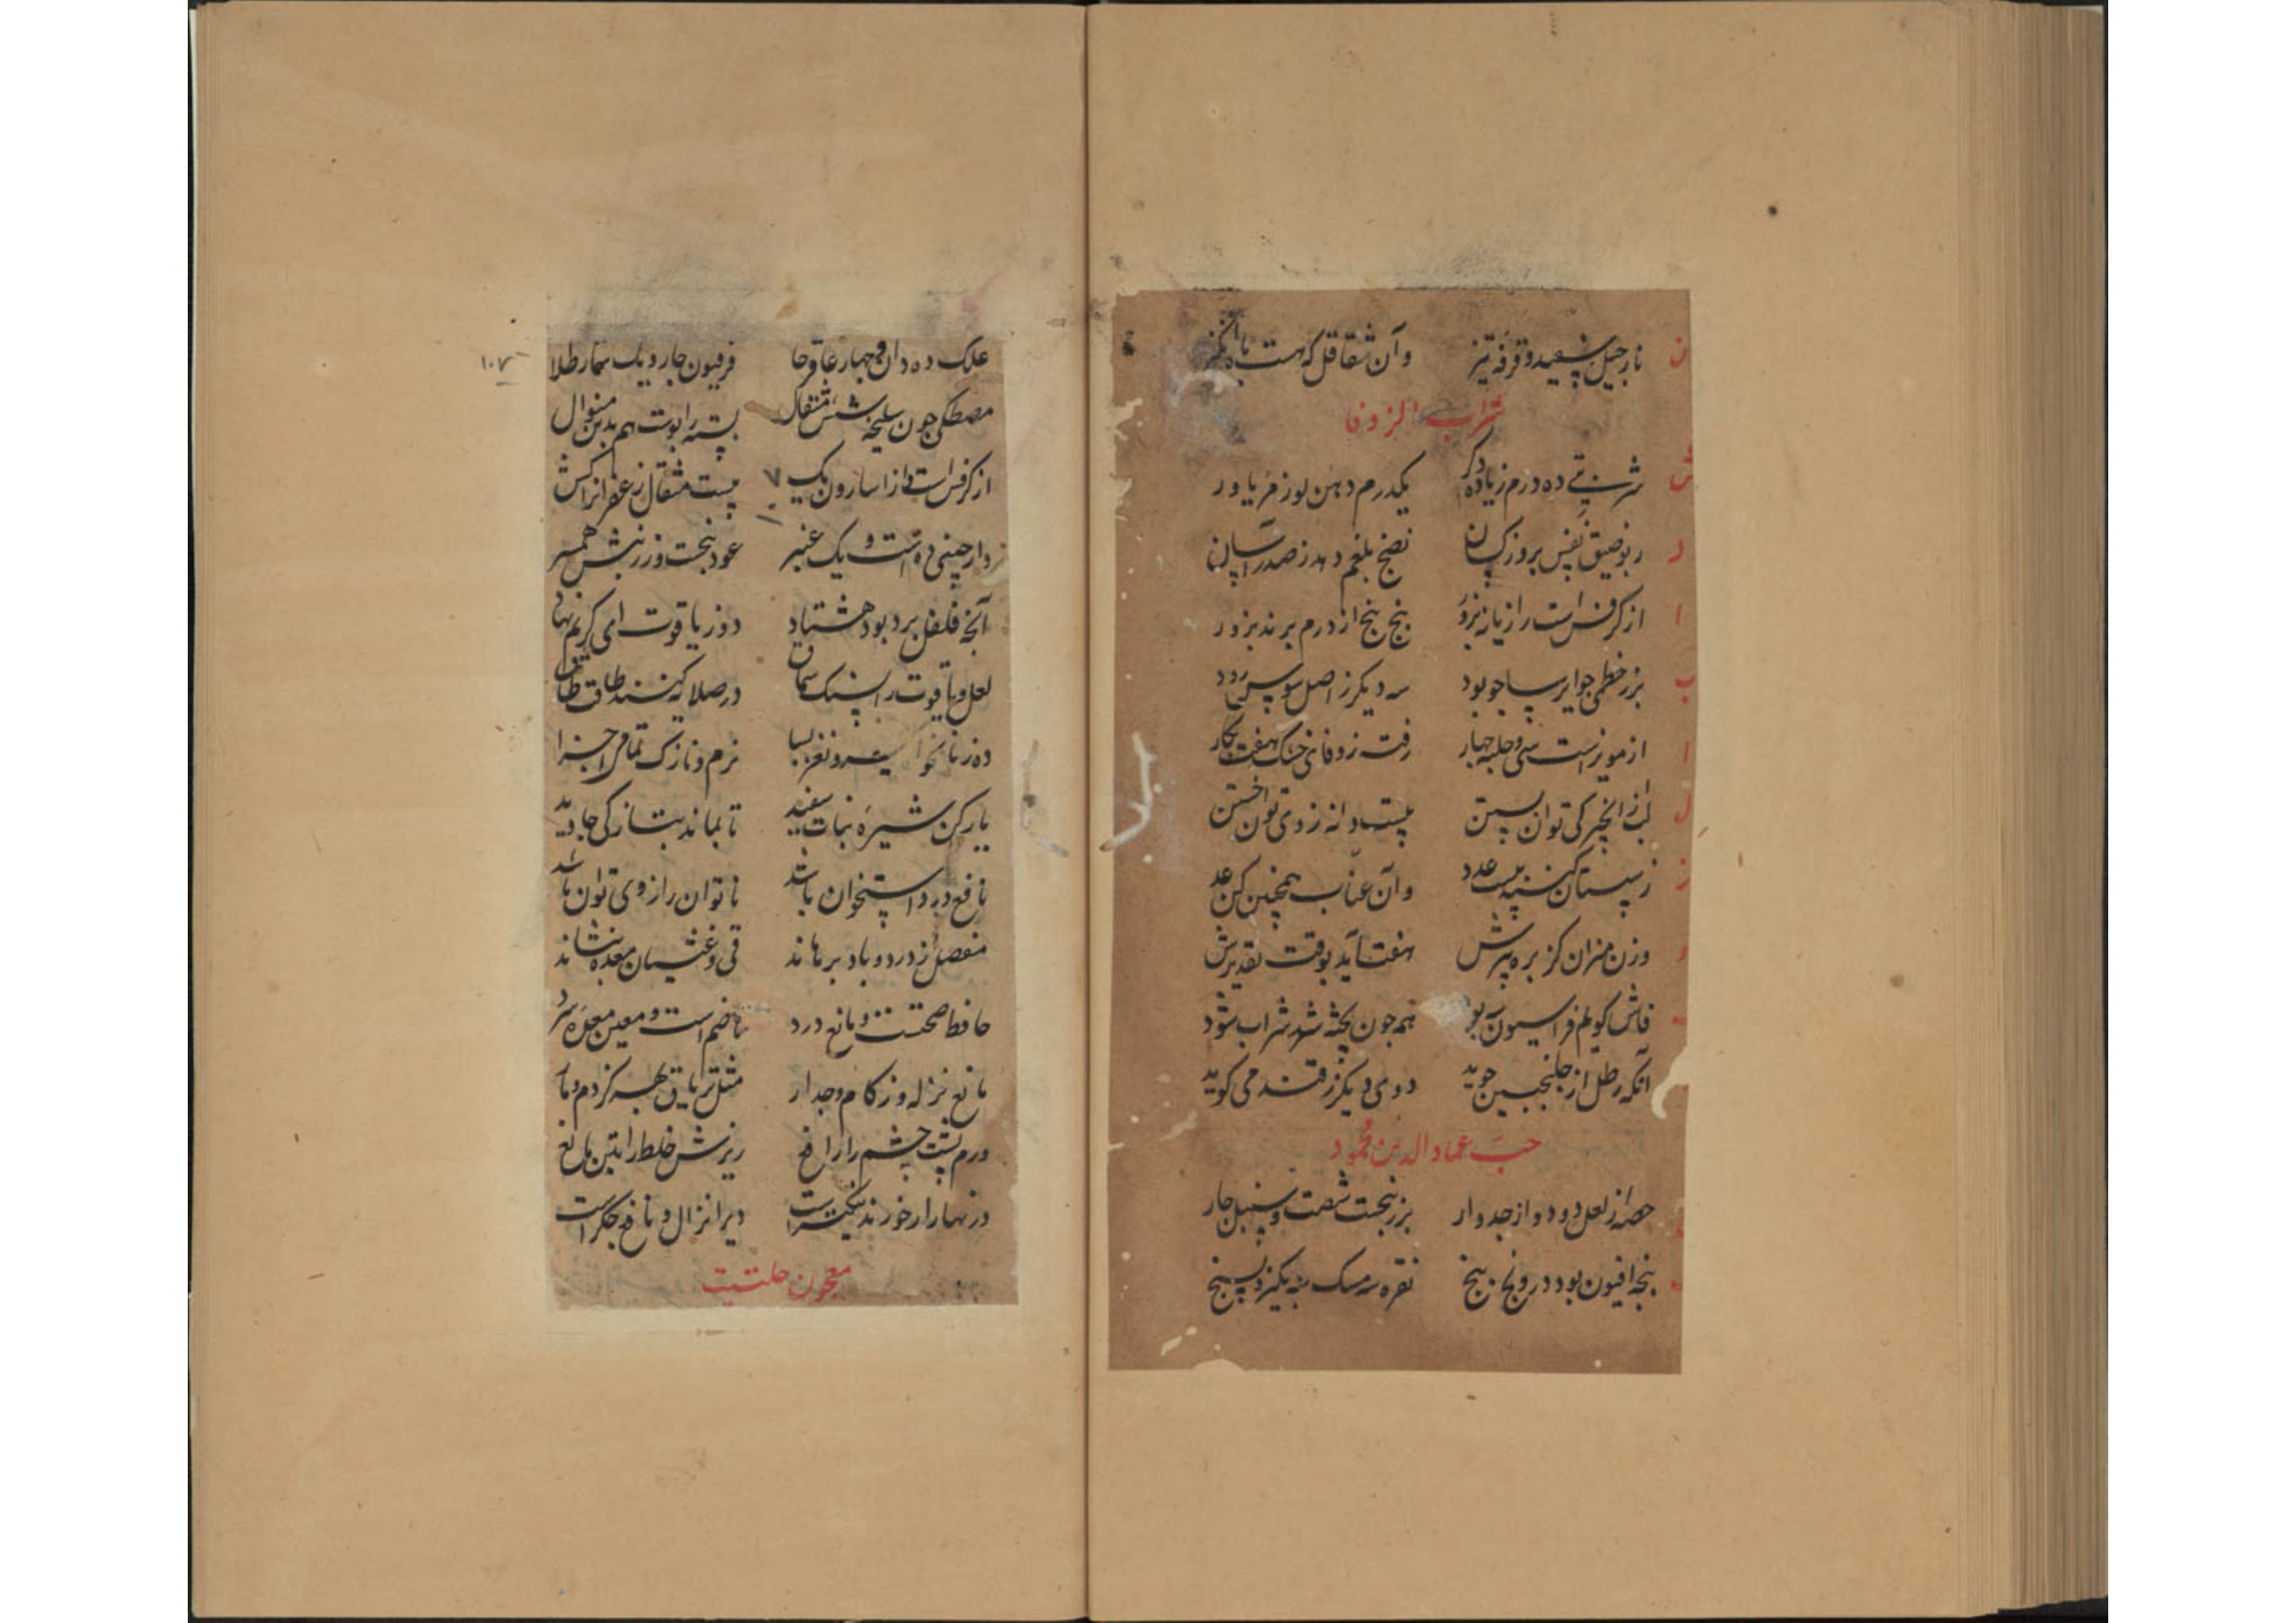 نارجیل سپید و قرفه تیز وآن شقاقل که هست
شراب الزوفا
شربتی ده درم زیاده یکدرم دهن لوز مر یاور
ربو ضیق نفس بروز کسان نضج بلغم دهد ز صدر آسان
از کرفس است رازیانه بزور پنج پنج از درم برند بزور
بزر خطمی جو ایرسا جو بود سه دیکر ز اصل سوس رود
از مویز است سی و حلبه چهار رفت زوفای خشک هفت بکار
لب ز انجیر کی توان بستن بیست دانه ز وی توان خستن
ز سپستان کنند بیست عدد وآن عناب همچنین کن عد
وزن میزان کزبره برش هفت آید بوقت تقدیرش
فاش کویم فراسیون بود همه جون پخته شد شراب شود
آنکه رطل از جلنجبین جوید دوی دیکر ز قند می کوید
حب عماد الدین محمود
حصه از لعل دو دو از جدوار بزر بنجست شصت و سنبل چار
پنجه افیون بود درونج پنج نقره سه مسک
علک ده دان و چهار عاقرحا فرفیون چار و یک شمار طلا
۱۰۷
مصطکی چون سلیخه شش مثقال پسته را بوست هم بدین منوال
از کرفس است و از اسارون یک بیست مثقال زعفران
دارچینی ده است و یک عنبر عود پنجست و زرنبش همسر
آنچه فلفل برد بود هشتاد دو ز یاقوت ای کریم نهاد
لعل و یاقوت را بسنک سماق در صلایه کنند طاقت طاق
ده ز نانخوا نرم و نازک تمامی اجزا
یار کن شیره نبات سفید تا بماند بتازکی جاوید
نافع درد استخوان باشد ناتوان را ز وی توان باشد
مفصل ز درد و باد برهاند قی و غثیان معده بنشاند
حافظ صحتست و مانع درد هاضم است و معین معده سرد
مانع نزله و زکام و جدار مثل تریاق بهر کزدم و مار
ورم پشت چشم را رافع ریزش خلط را متین مانع
در نهار ار خورند نیکتر است دیر انزال و نافع جکر است
معجون حلتیت